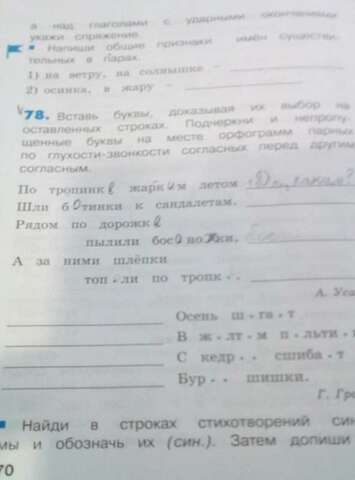 а над глаголами с ударными окончаниями
укажи спряжение.
Напиши общие признаки имён существи-
тельных в парах.
1) на ветру, на солнышке –
2) осинка, в жару –
78. Вставь буквы, доказывая их выбор на
оставленных строках. Подчеркни и непропу-
щенные буквы на месте орфограмм парных
по глухости-звонкости согласных перед другим
согласным.
По тропинке жарким летом
Шли ботинки к сандалетам.
Рядом по дорожке
пылили босоножки.
А за ними шлёпки
топ.ли по тропк..
А. Уса
Осень ш.га.т
В ж.лт.м п.льти
С кедр.. сшиба.т
Бур.. шишки.
Г. Гр
Найди в строках стихотворений син
мы и обозначь их (син.). Затем допиши
70